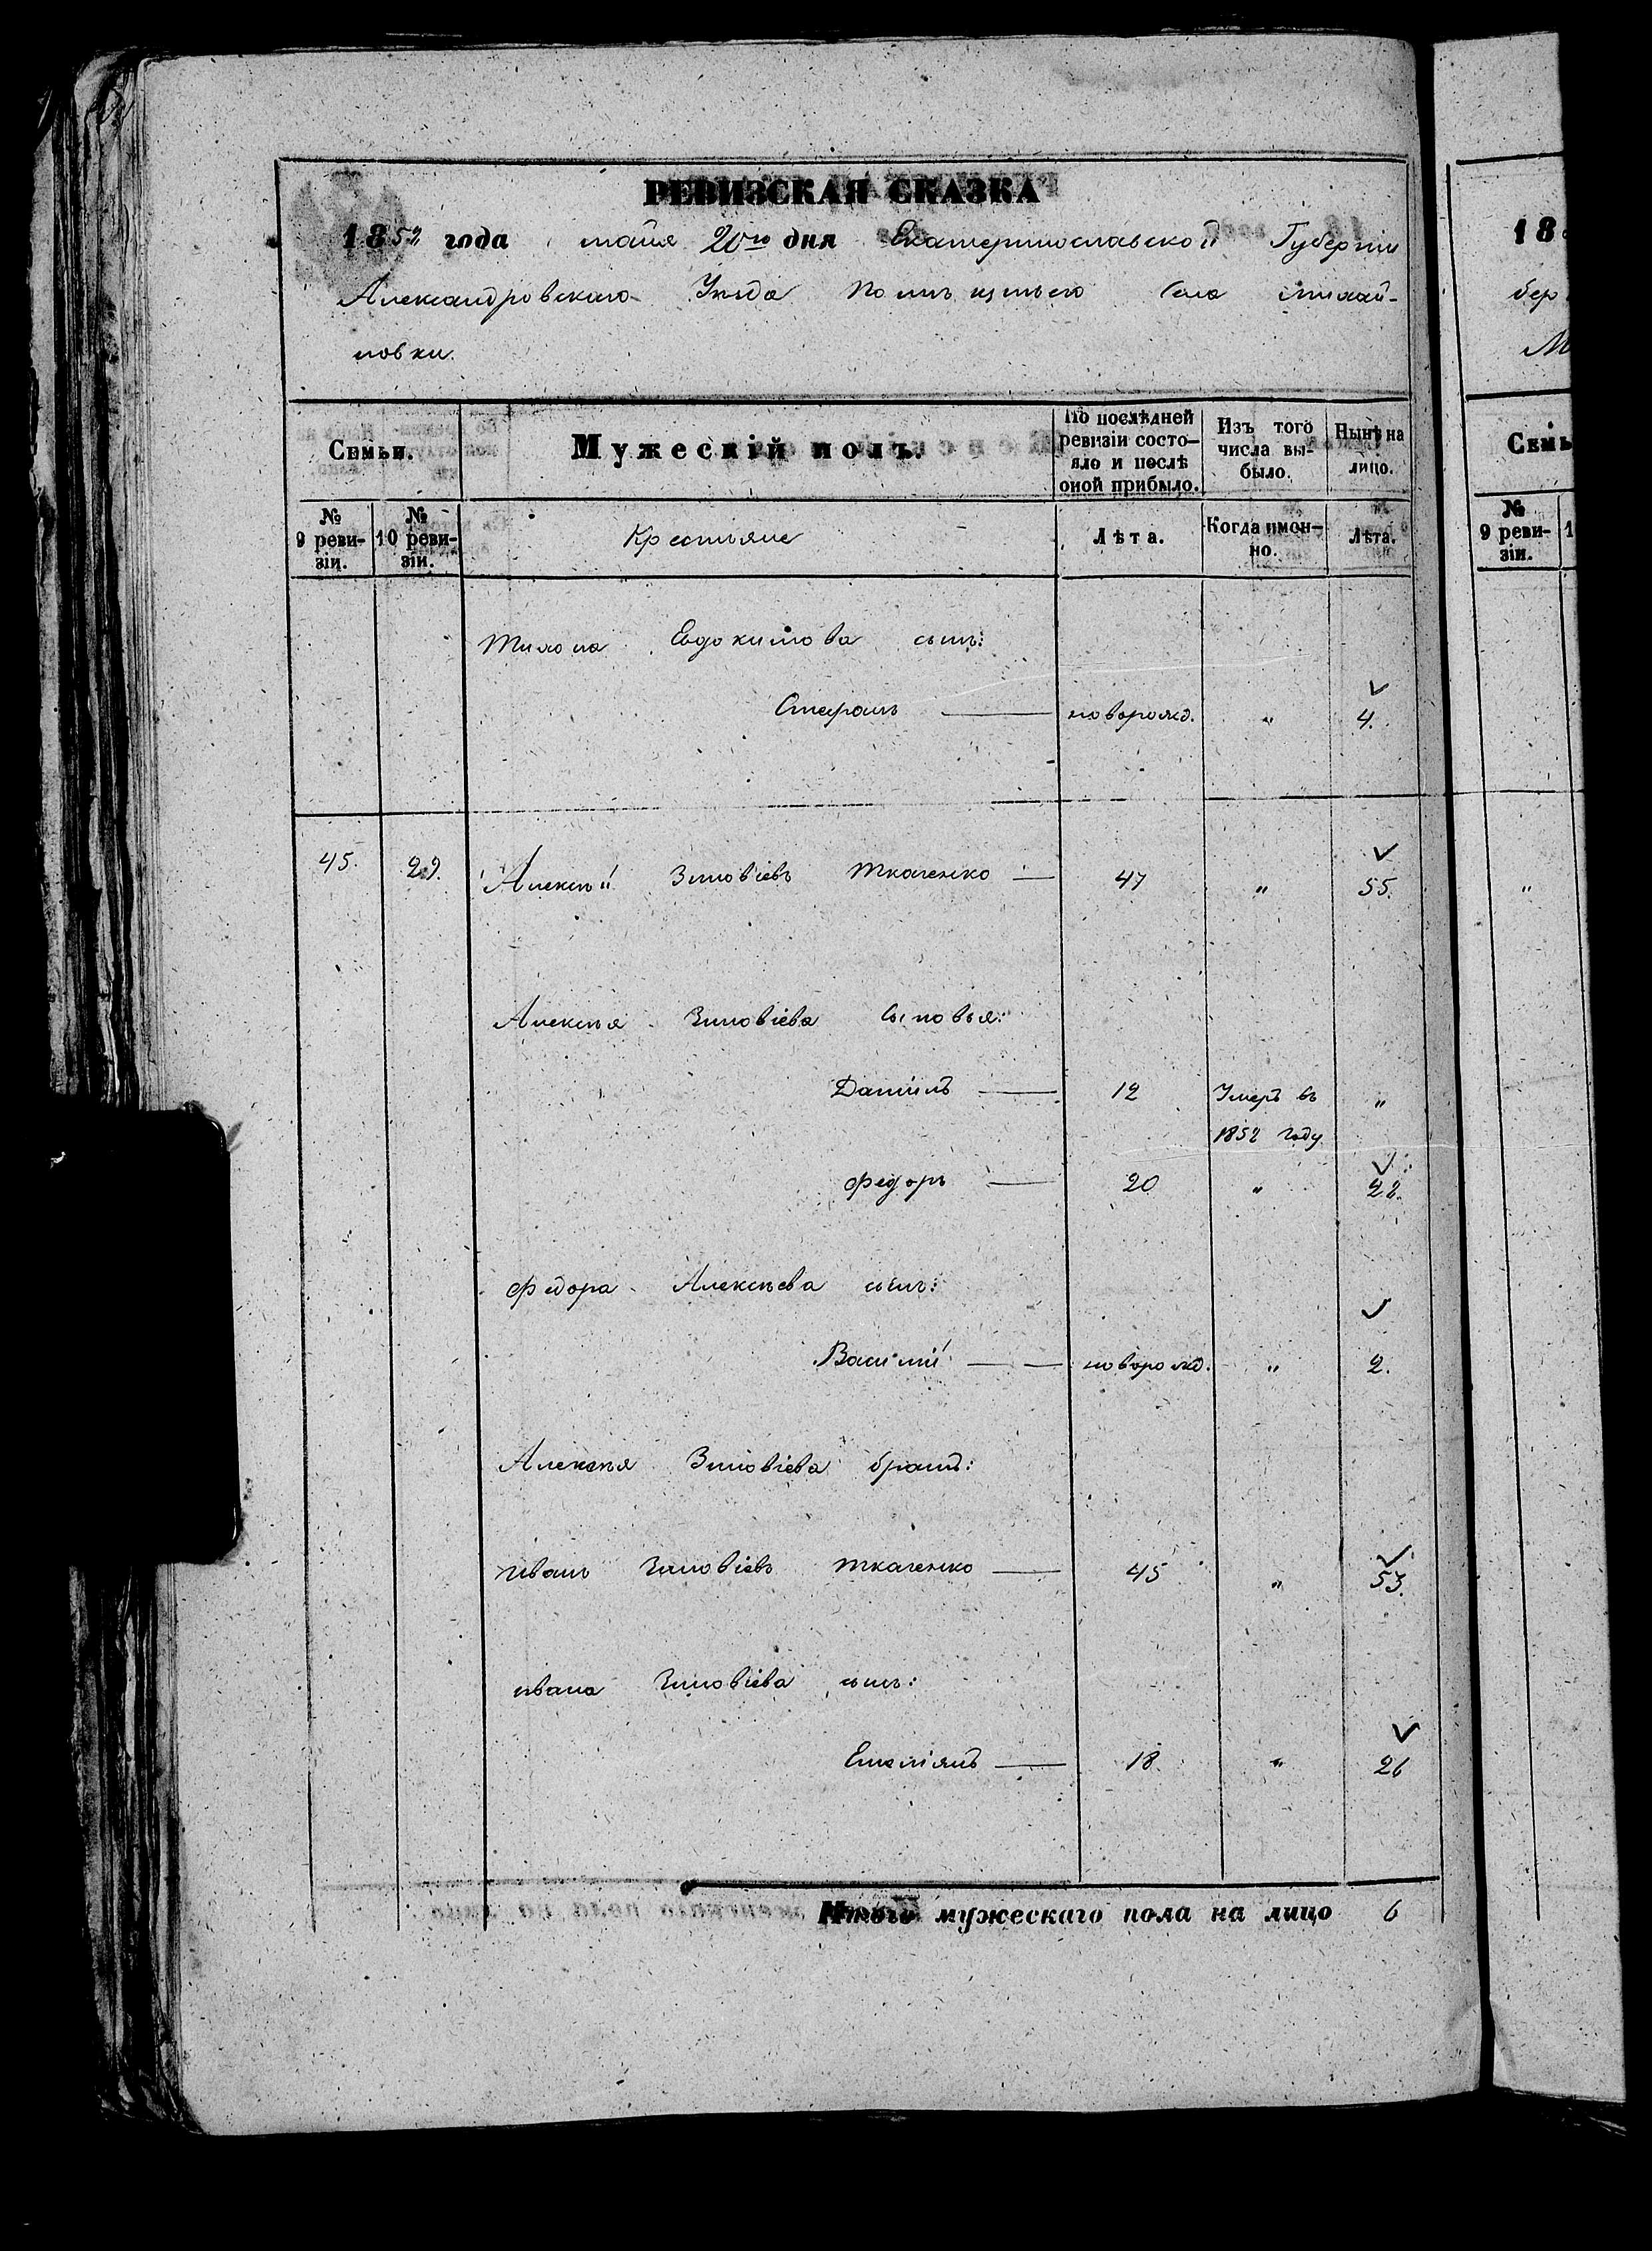 РЕВИЗСКАЯ СКАЗКА
1852 года майя 20го дня Екатеринославской Губерніи
Александровскаго Уѣзда помѣщичьего Села Михай-
ловки.
Семьи. Мужескій полъ. По послѣдней ревизіи состо-яло и послѣ оной прибыло. Изъ того числа вы-было. Нынѣ на лицо.
№ 9 реви-зіи. № 10 реви-зіи. Крестьяне Лѣта. Когда имен-но. Лѣта.
Евдокимова сынъ:
Стефанъ новорожд. " 4.
45. 29. Алексѣй Зиновіевъ Ткаченко 47 " 55.
Алексѣя Зиновіева Сыновья:
Даніилъ 12 Умеръ въ "
1852 году
Федоръ 20 " 28.
Федора Алексѣева сынъ:
Василій новорожд. " 2.
Алексѣя Зиновіева братъ:
Иванъ Зиновіевъ Ткаченко 45 " 53.
Ивана Зиновіева сынъ:
Емеліянъ 18 " 26
Итого мужескаго пола на лицо 6
18
бер
М
Семь
№ 9 реви-зіи. 1
"